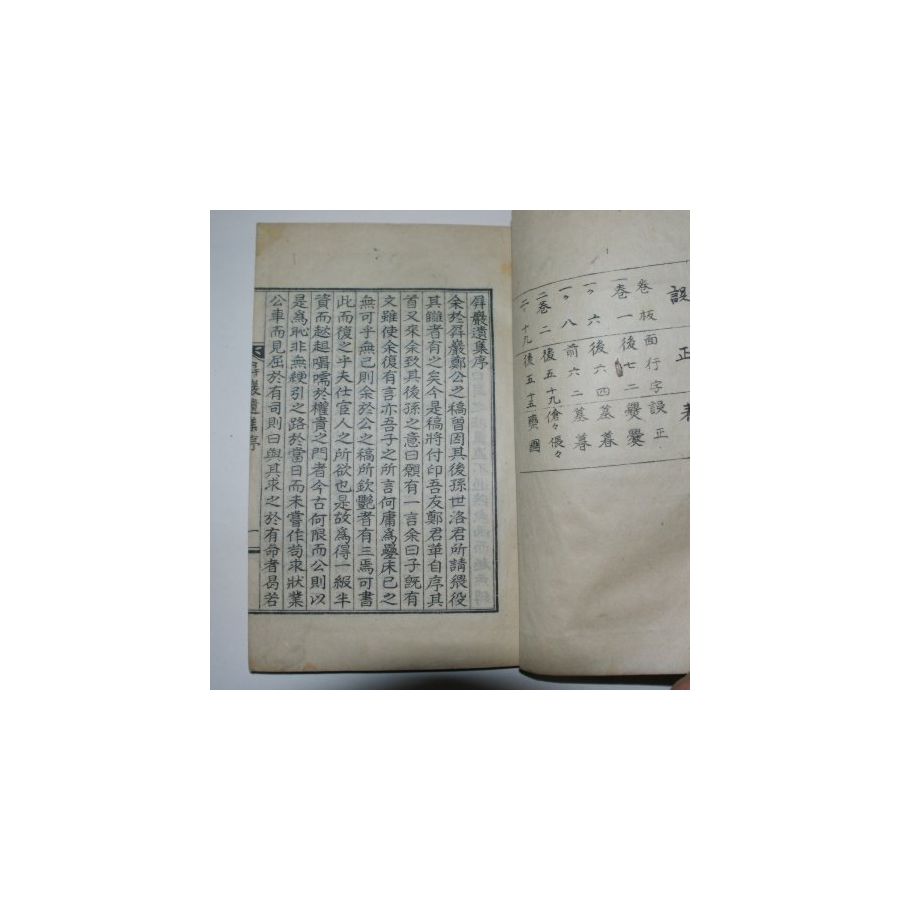 誤正表
卷板面行字誤正
一卷一後七二
一〃六後六四墓暮
一〃八前六二墓暮
二卷二後五十九傖々倀々
二十九後五十五
屛巖遺集序
余於屛巖鄭公之稿曾因其後孫世洛君所請猥役
其讎者有之矣今是稿將付印吾友鄭君華自序其
首又來余致其後孫之意曰願有一言余曰子旣有
文雖使余復有言亦吾子之所言何庸爲疊床已之
無可乎無已則余於公之稿所欽艷者有三焉可書
此而復之乎夫仕宦人之所欲也是故爲得一級半
資而趑趄囁嚅於權貴之門者今古何限而公則以
是爲恥非無綆引之路於當日而未嘗作苟求狀業
公車而見屈於有司則曰與其求之於有命者曷若
屛巖遺集序
一